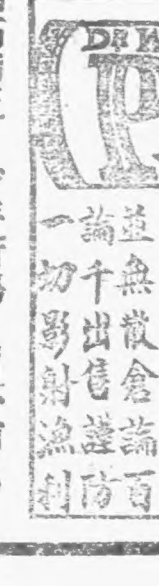 DR W
P
並無散倉論百
論千出售謹防
一切影射漁利